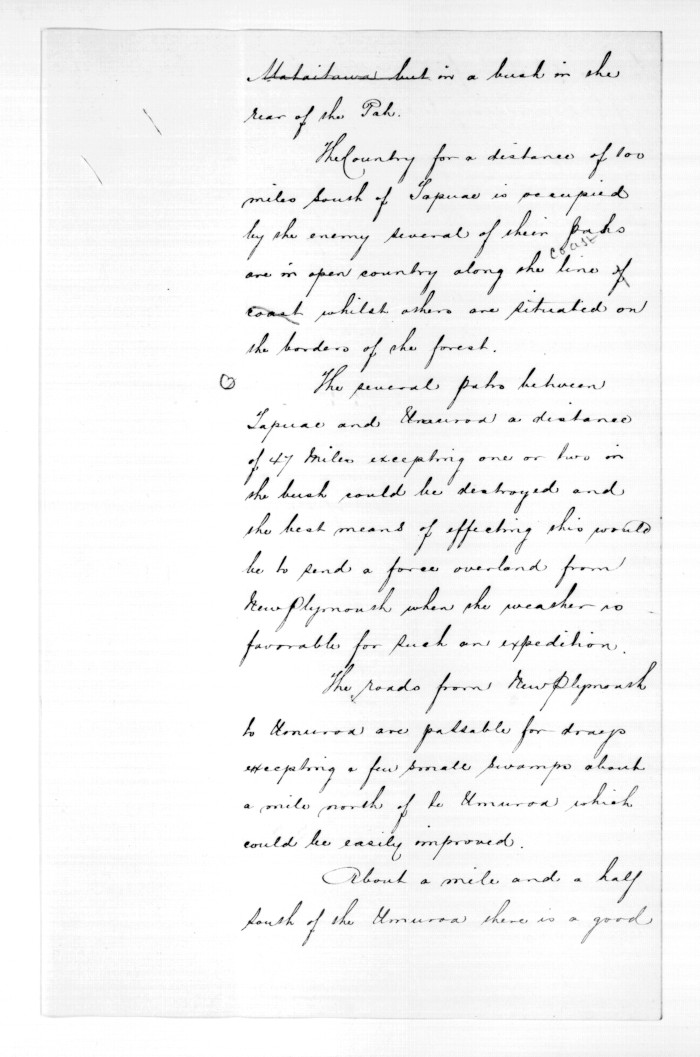 Mataitawa but in a bush in the
rear of the Pah.
The Country for a distance of 100
miles south of Tapuae is occupied
by the enemy several of their pahs
coast
are in open country along the line of
coast whilst others are situated on
the borders of the forest.
The several pahs between
Tapuae and Umuroa a distance
of 47 Miles excepting one or two in
the bush could be destroyed and
the best means of effecting this would
be to send a force overland from
New Plymouth when the weather is
favorable for such an expedition.
The roads from New Plymouth
to Umuroa are passable for drays
excepting a few small swamps about
a mile north of te Umuroa which
could be easily improved.
About a mile and a half
south of the Umuroa there is a good